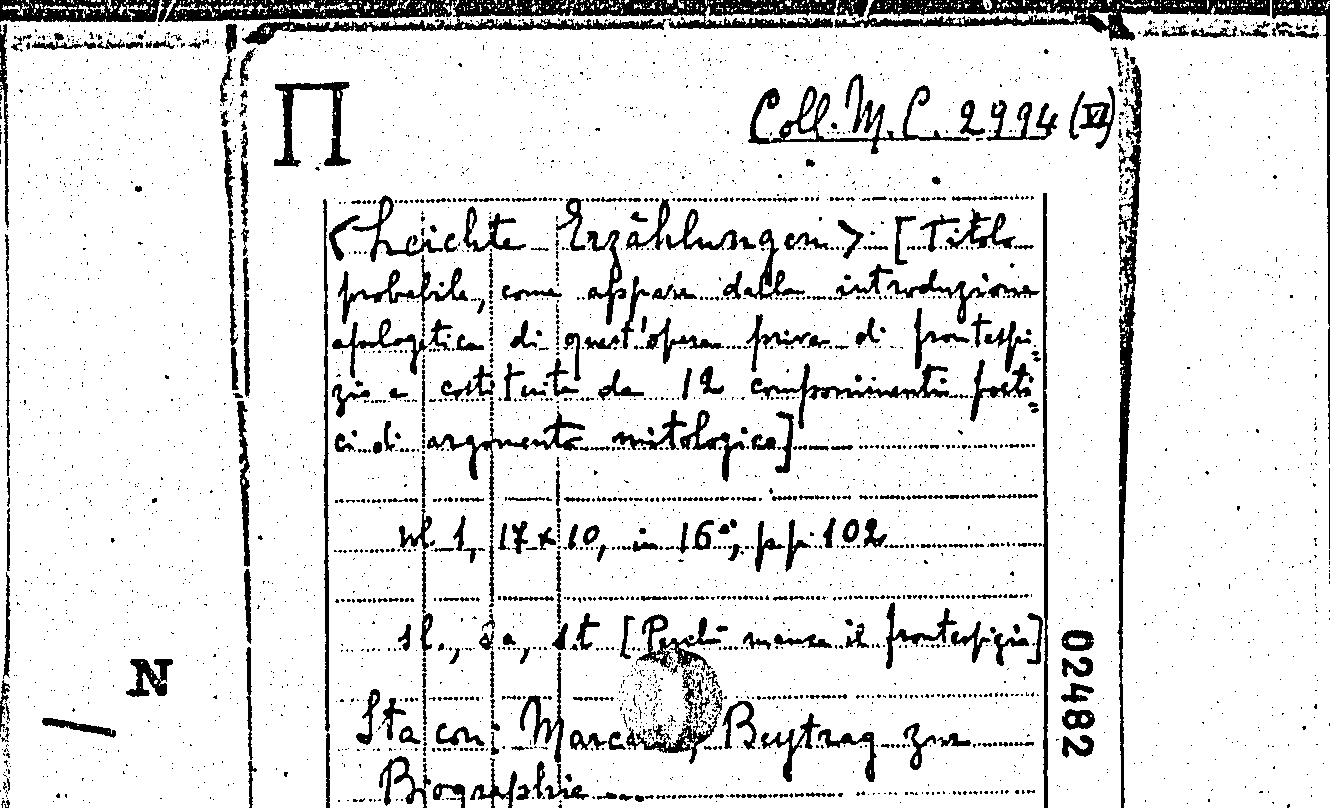 Π
Coll. M. C. 2994 (VI)
<Leichte Erzählungen> [Titolo
probabile, come appare dalla introduzione
apologetica di quest'opera priva di frontespi=
zio e costituita da 12 componimenti poeti=
ci di argomento mitologico]
vol 1, 17 x 10, in 16°, pp. 102
s.l., s.a., s.t [Perchè manca il frontespizio]
N
02482
Sta con: Beytrag zur
Biographie ...